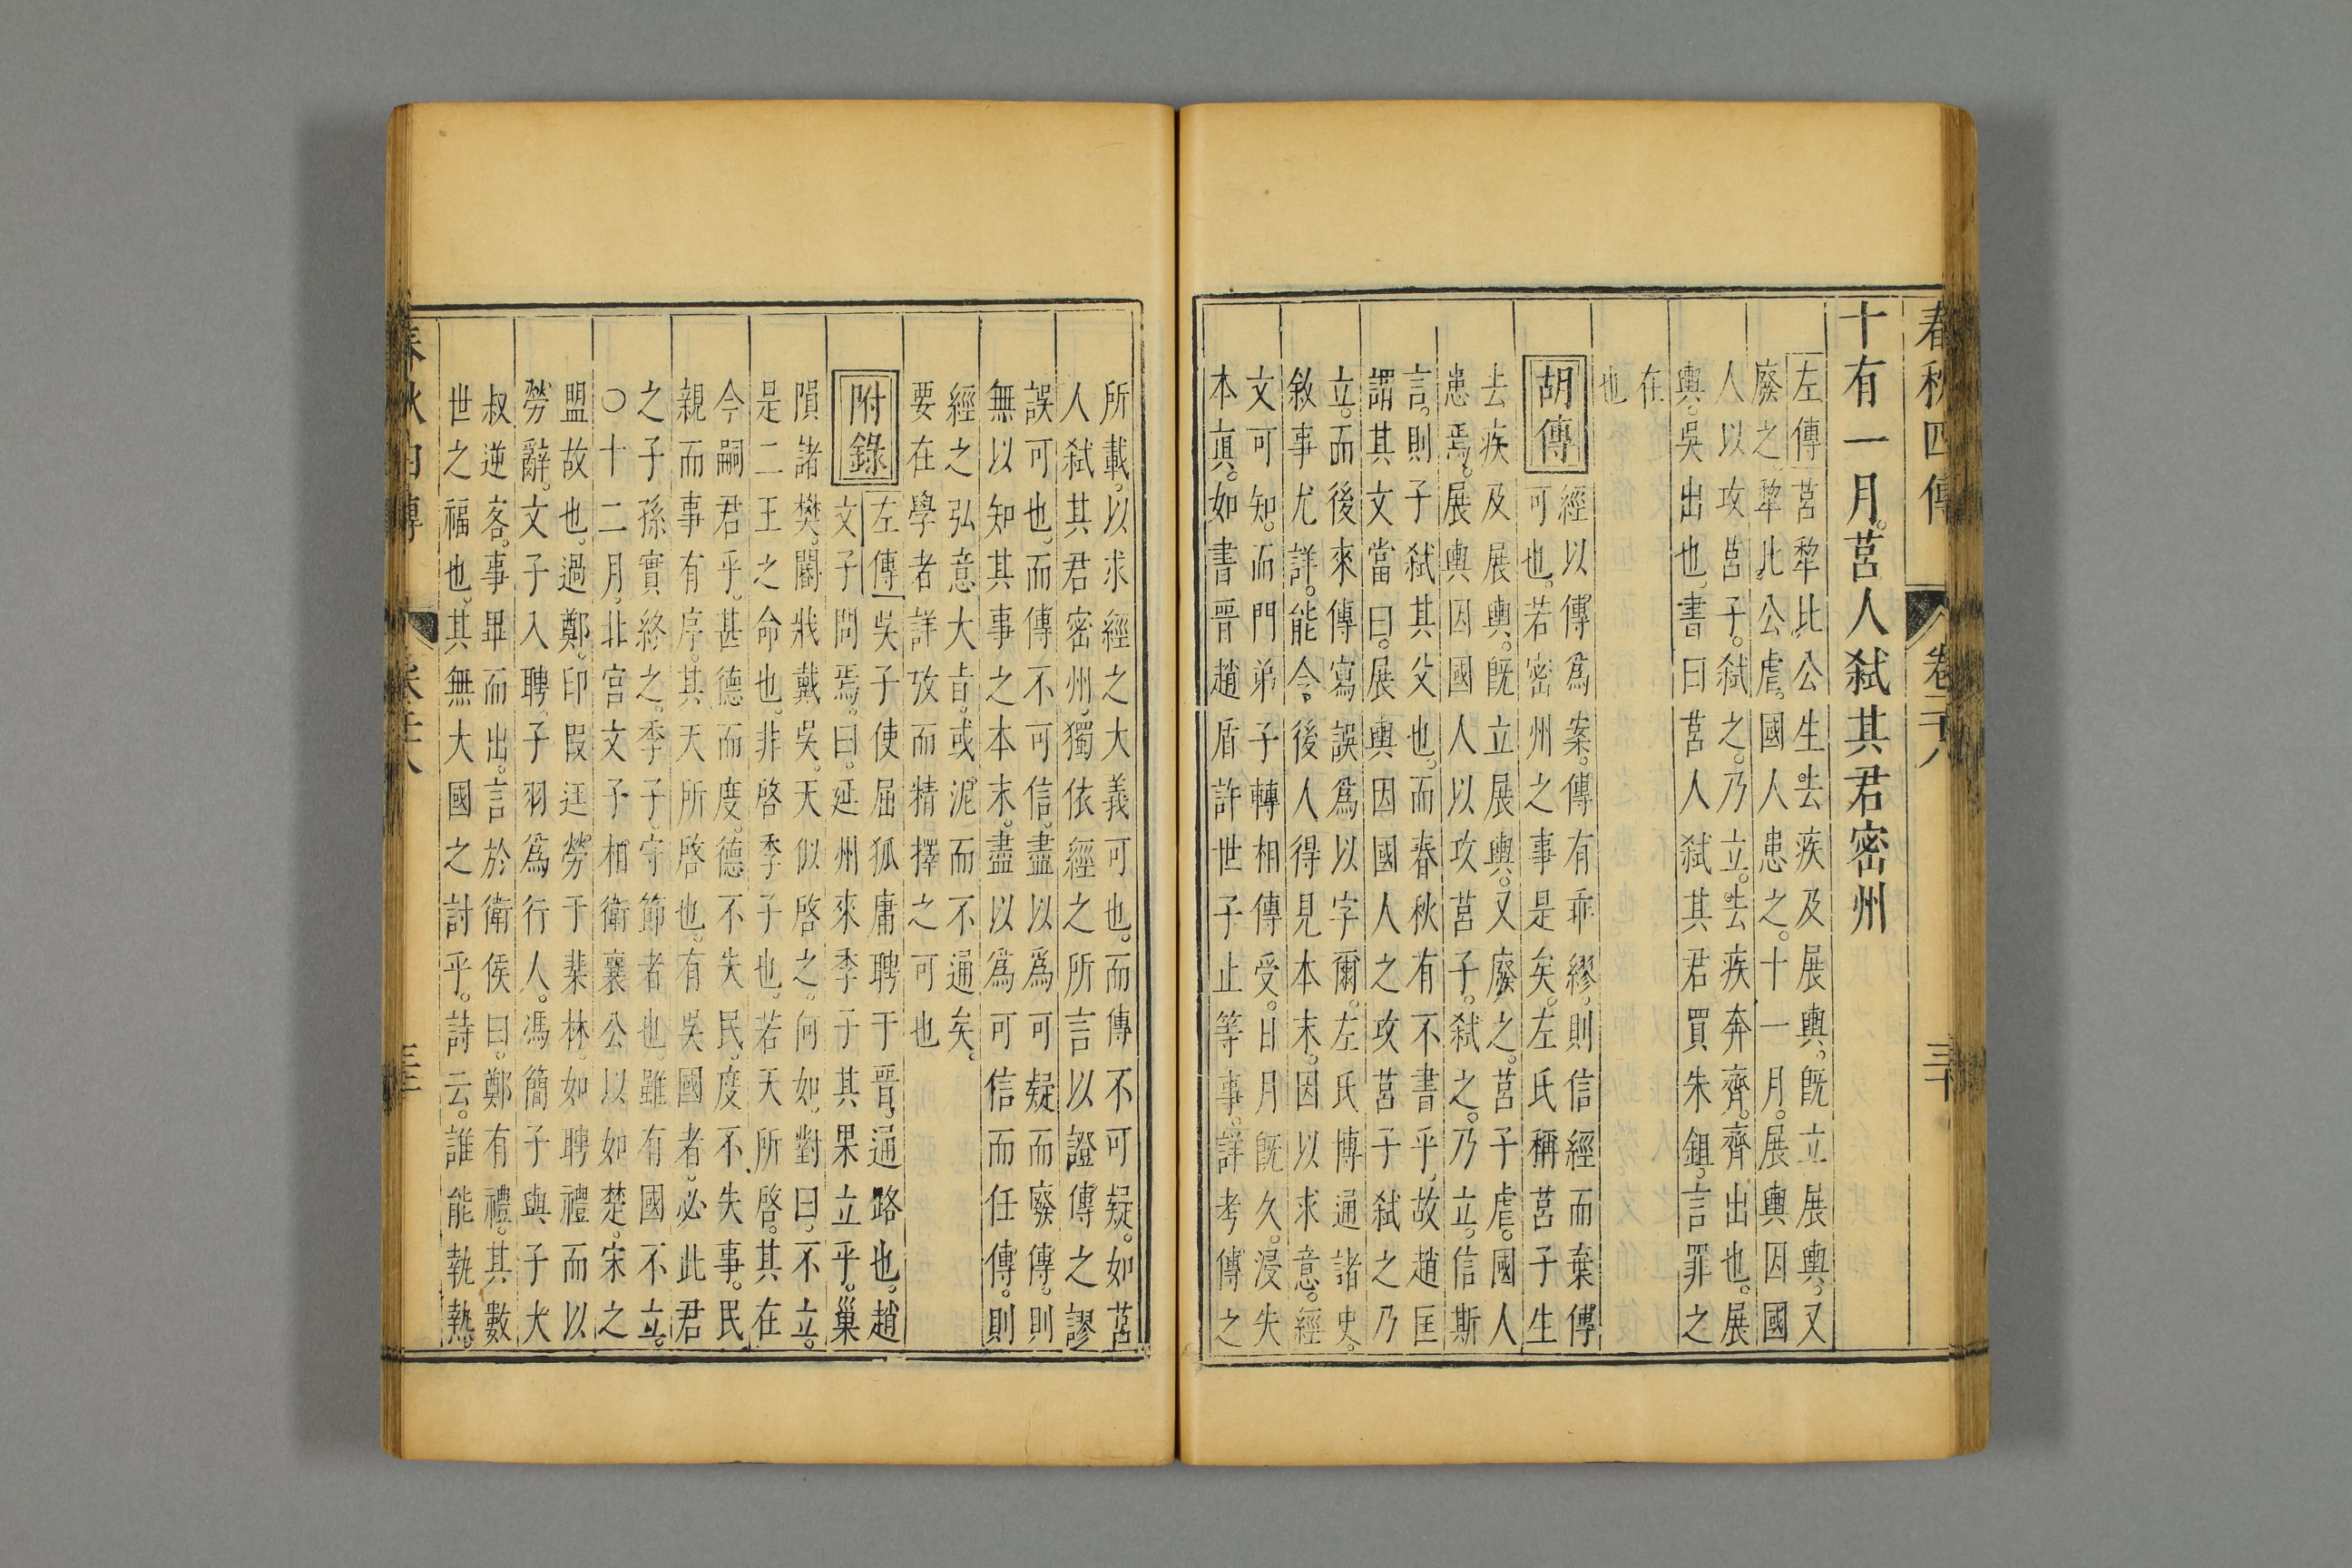 春秋四傳 卷二十八 三十
十有一月。莒人弒其君密州
左傳莒犂比公生去疾及展輿。旣立展輿。又
廢之。犂比公虐。國人患之。十一月。展輿因國
人以攻莒子。弒之。乃立。去疾奔齊。齊出也。展
輿。吳出也。書曰莒人弒其君買朱鉏。言罪之
在
也
胡傳
經以傳爲案。傳有乖繆。則信經而棄傳
可也。若密州之事是矣。左氏稱莒子生
去疾及展輿。旣立展輿。又廢之。莒子虐。國人
患焉。展輿因國人以攻莒子。弒之。乃立。信斯
言。則子弒其父也。而春秋有不書乎。故趙匡
謂其文當曰。展輿因國人之攻莒子弒之乃
立。而後來傳寫誤爲以字爾。左氏博通諸史。
敘事尤詳。能令後人得見本末。因以求意。經
文可知。而門弟子轉相傳受。日月旣久。浸失
本眞。如書晉趙盾許世子止等事。詳考傳之
所載。以求經之大義可也。而傳不可疑。如莒
人弒其君密州。獨依經之所言以證傳之謬
誤可也。而傳不可信。盡以爲可疑而廢傳。則
無以知其事之本末。盡以爲可信而任傳。則
經之弘意大㫖。或泥而不通矣。
要在學者詳攷而精擇之可也
附錄
左傳吳子使屈狐庸聘于晉。通路也。趙
文子問焉。曰。延州來季子其果立乎。巢
隕諸樊。閽戕戴吳。天似啓之。何如。對曰。不立。
是二王之命也。非啓季子也。若天所啓。其在
今嗣君乎。甚德而度。德不失民。度不失事。民
親而事有序。其天所啓也。有吳國者。必此君
之子孫實終之。季子。守節者也。雖有國不立。
○十二月。北宮文子相衛襄公以如楚。宋之
盟故也。過鄭。印段迋勞于棐林。如聘禮而以
勞辭。文子入聘。子羽爲行人。馮簡子與子大
叔逆客。事畢而出。言於衛侯曰。鄭有禮。其數
世之福也。其無大國之討乎。詩云。誰能執熱。
春秋四傳 卷二十八